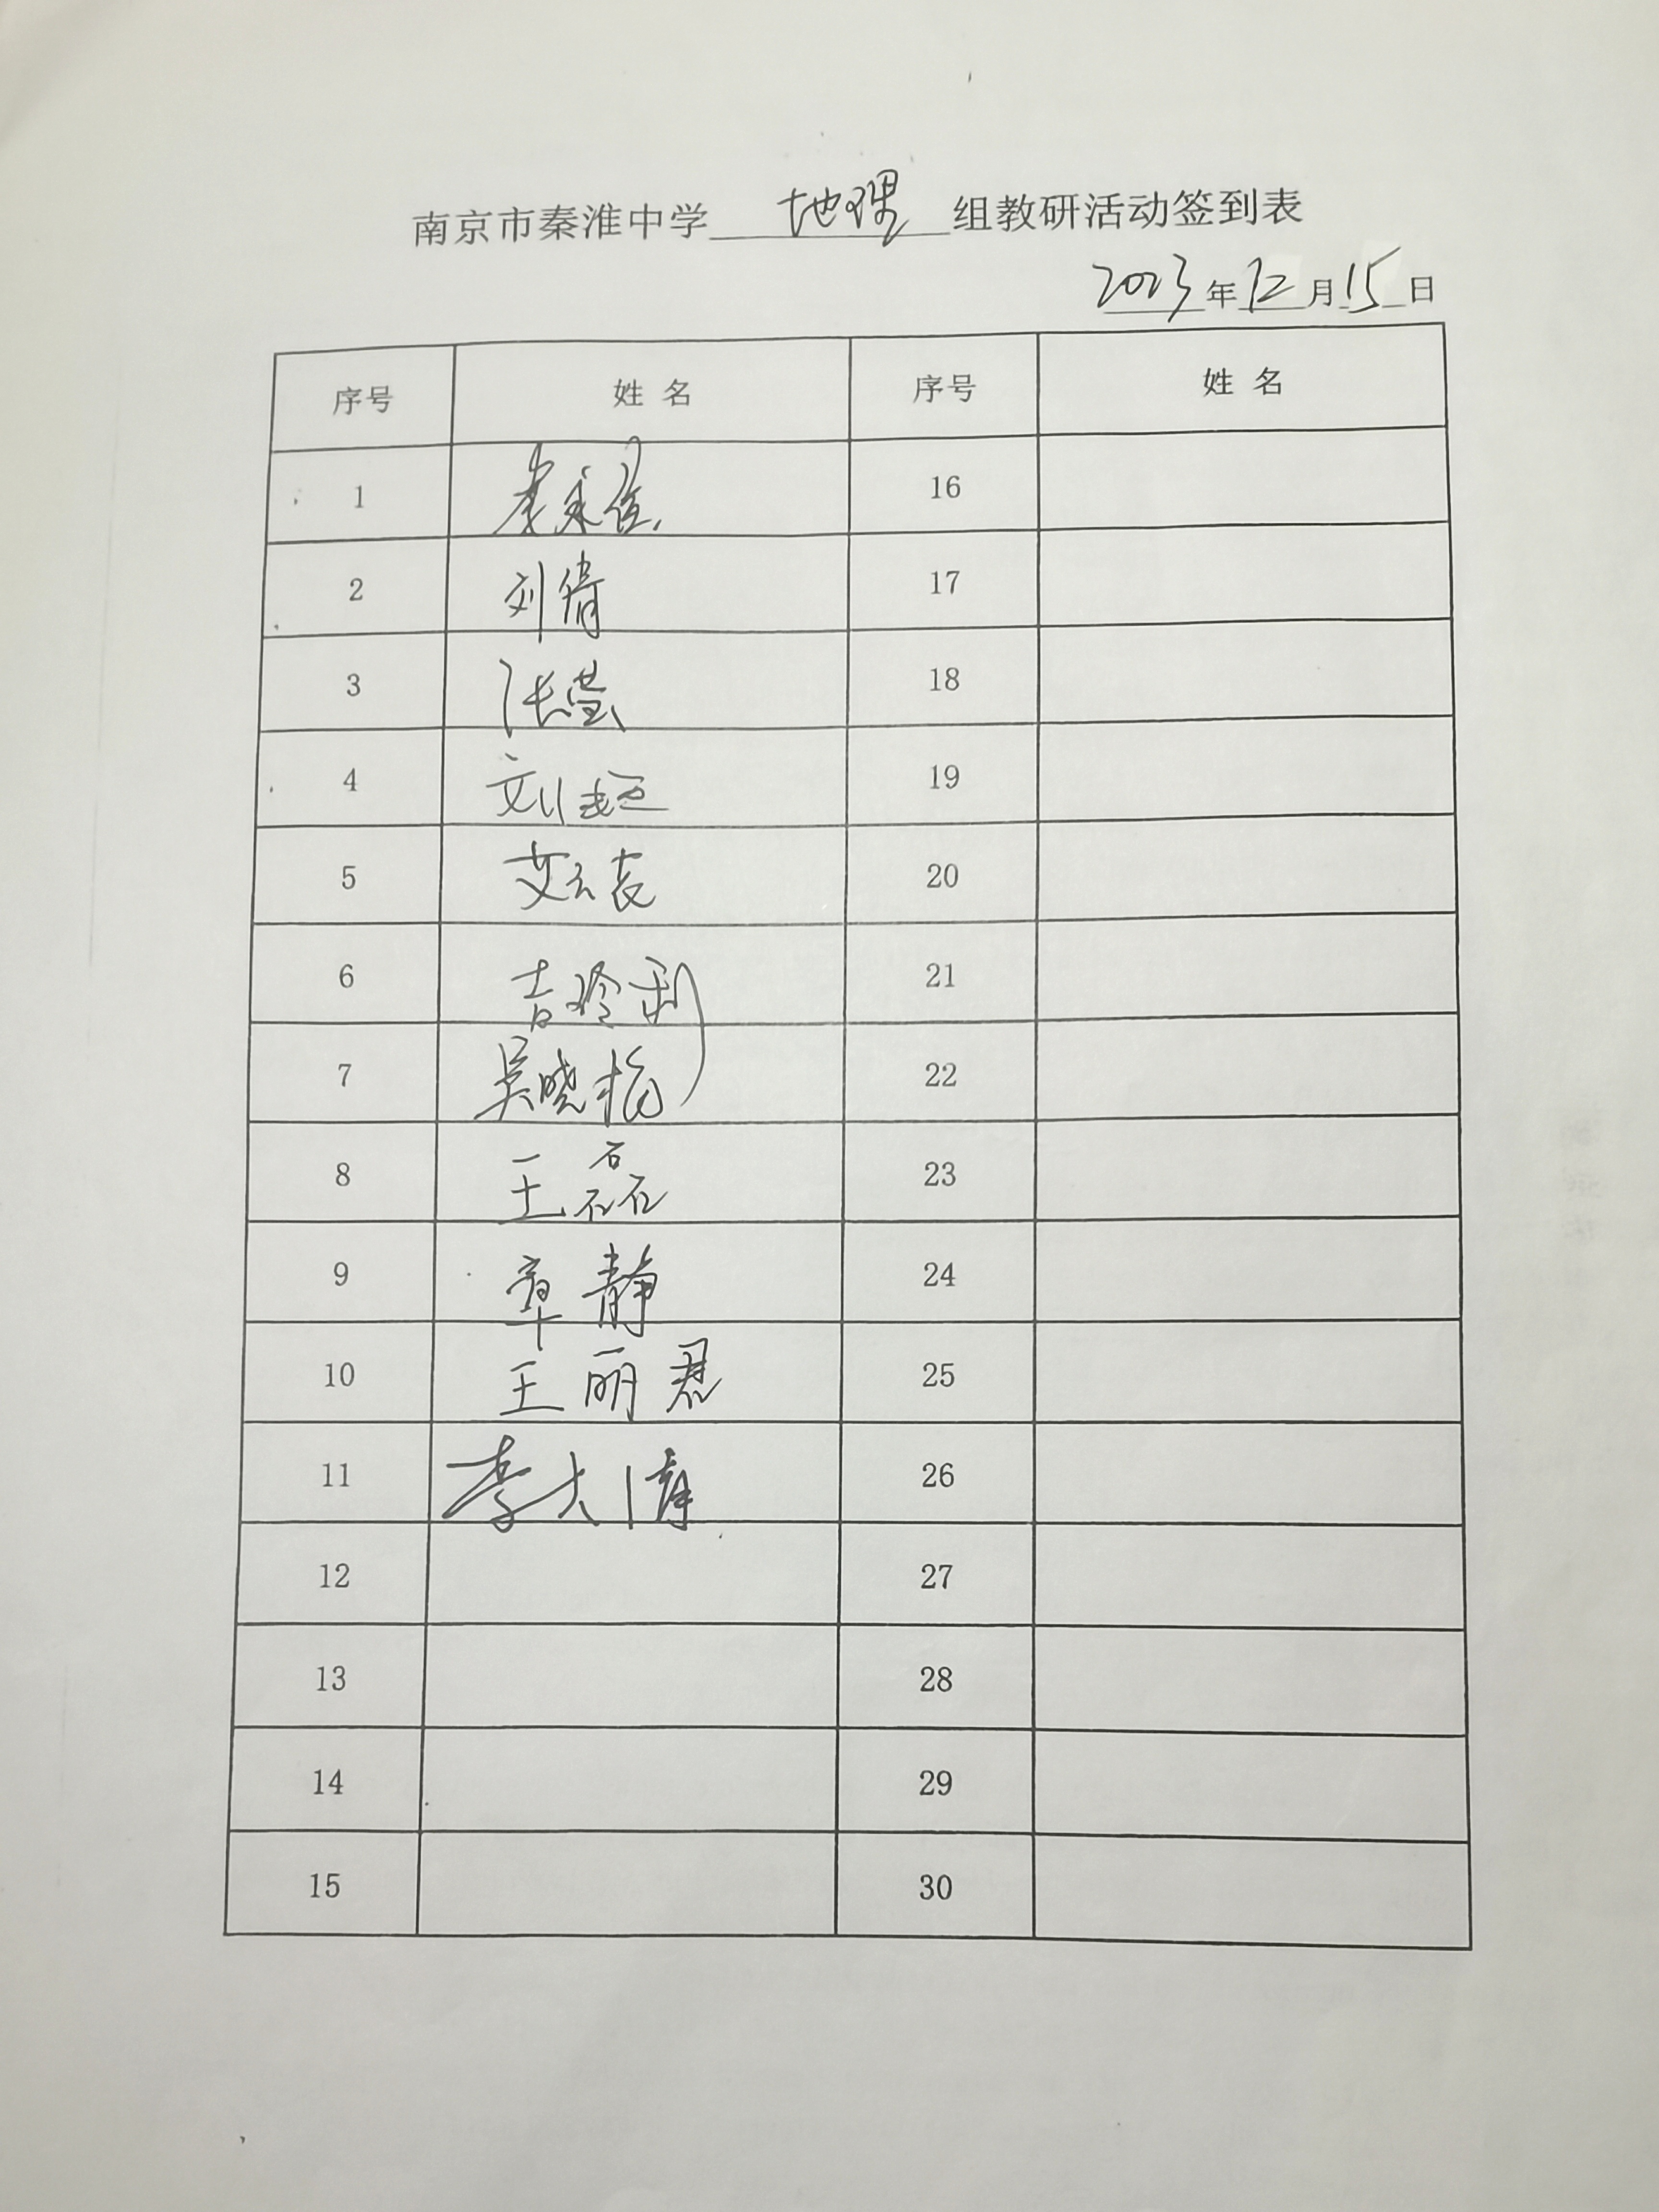 南京市秦淮中学 地理 组教研活动签到表
2023年12月15日
序号 姓名 序号 姓名
1 16
2 刘倩 17
3 张莹 18
4 刘超 19
5 艾云 20
6 吉玲利 21
7 吴晓 22
8 王磊 23
9 章静 24
10 王丽君 25
11 李大清 26
12 27
13 28
14 29
15 30